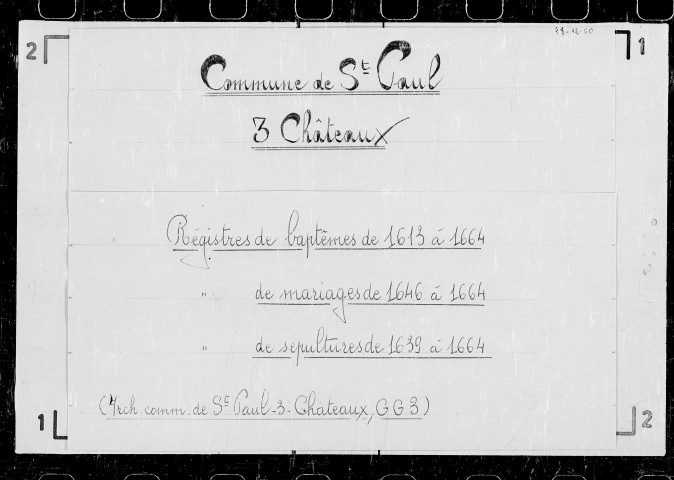 2
1
Commune de St Paul
3 Châteaux
Régistres de baptêmes de 1613 à 1664
" de mariages de 1646 à 1664
" de sépultures de 1639 à 1664
(Arch. comm. de St Paul-3-Chateaux, GG3)
1
2